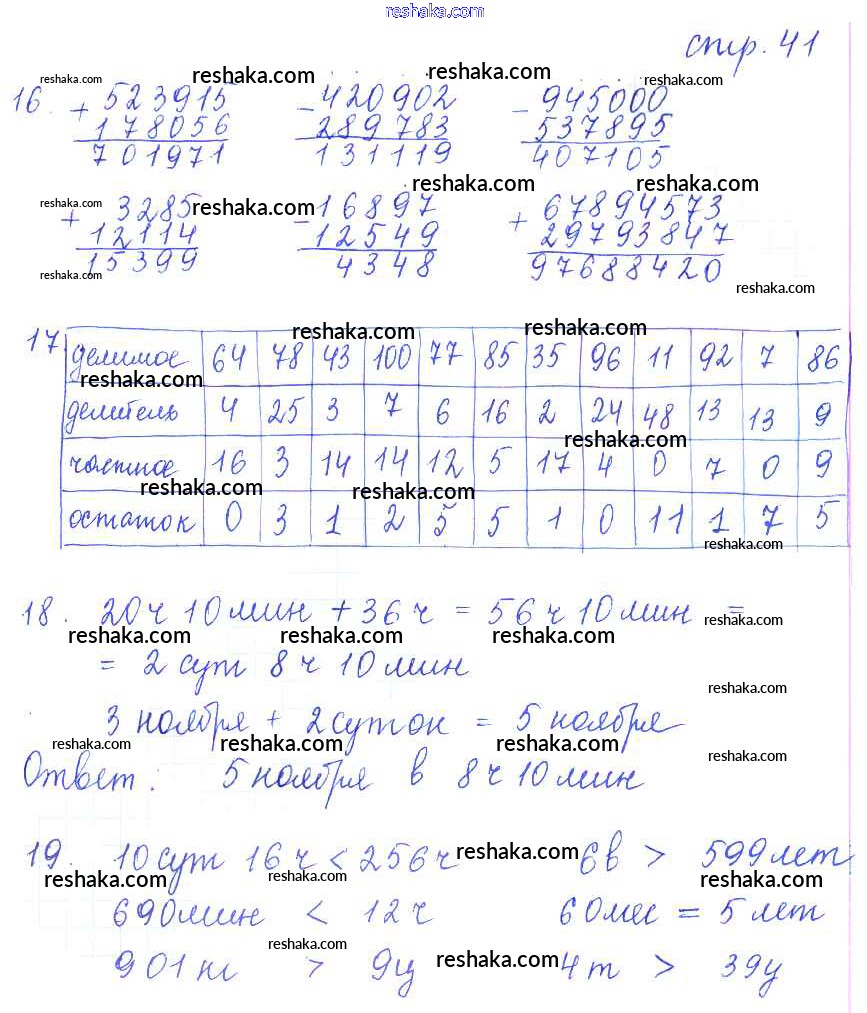 reshaka.com
стр. 41
reshaka.com reshaka.com reshaka.com reshaka.com
16. + 523915 - 420902 - 945000
178056 289783 537895
701971 131119 407105
reshaka.com reshaka.com
+ 3285 - 16897 + 67894573
reshaka.com
12114 12549 29793847
15399 4348 97688420
reshaka.com reshaka.com
reshaka.com reshaka.com
17 делимое 64 78 43 100 77 85 35 96 11 92 7 86
reshaka.com
делитель 4 25 3 7 6 16 2 24 48 13 13 9
reshaka.com
частное 16 3 14 14 12 5 17 4 0 7 0 9
reshaka.com reshaka.com
остаток 0 3 1 2 5 5 1 0 11 1 7 5
reshaka.com
18. 20 ч 10 мин + 36 ч = 56 ч 10 мин =
reshaka.com
reshaka.com reshaka.com reshaka.com
= 2 сут 8 ч 10 мин
reshaka.com
3 ноября + 2 суток = 5 ноября
reshaka.com reshaka.com reshaka.com reshaka.com
Ответ: 5 ноября в 8 ч 10 мин
19. 10 сут 16 ч < 256 ч 6 в > 599 лет
reshaka.com
reshaka.com reshaka.com reshaka.com
690 мин < 12 ч 60 мес = 5 лет
reshaka.com reshaka.com
901 кг > 9 ц 4 т > 39 ц
reshaka.com